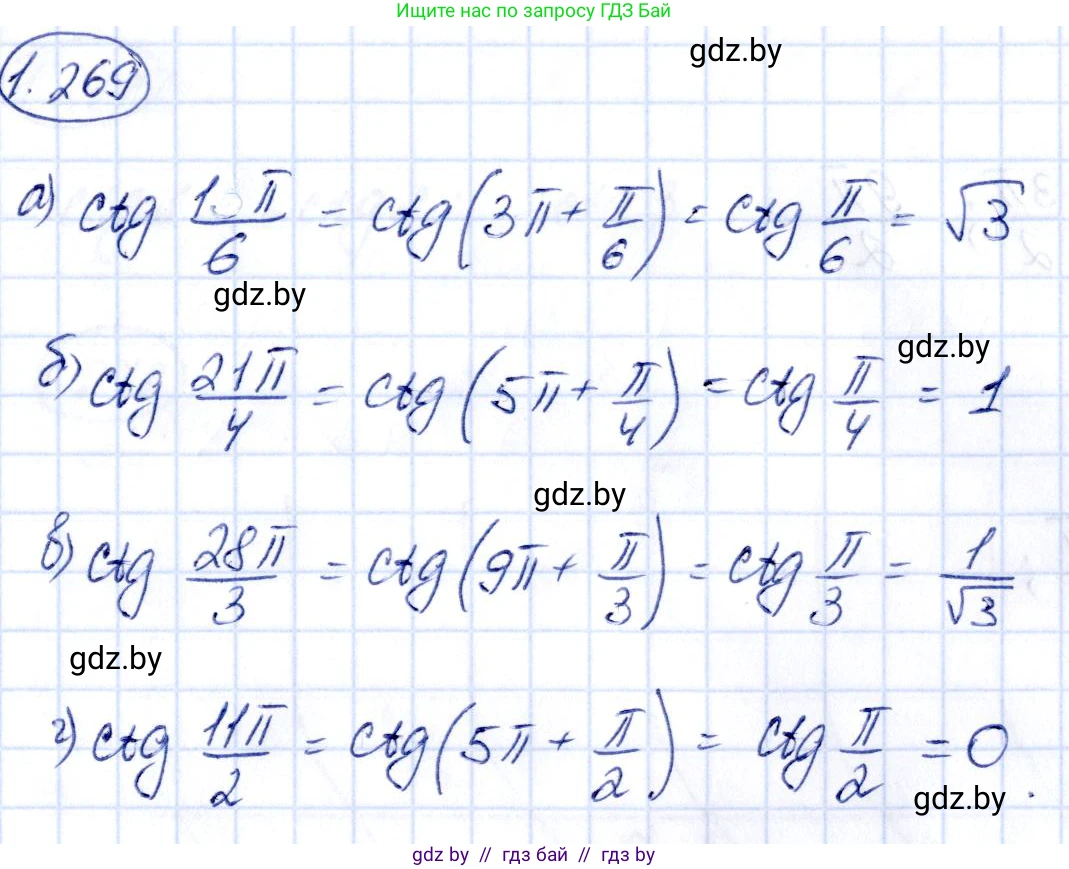 Ищите нас по запросу ГДЗ Бай
gdz.by
1.269
а) ctg π/6 = ctg(3π + π/6) = ctg π/6 = √3
gdz.by
gdz.by
б) ctg 21π/4 = ctg(5π + π/4) = ctg π/4 = 1
gdz.by
в) ctg 28π/3 = ctg(9π + π/3) = ctg π/3 = 1/√3
gdz.by
г) ctg 11π/2 = ctg(5π + π/2) = ctg π/2 = 0.
gdz.by
gdz by // гдз бай // гдз by